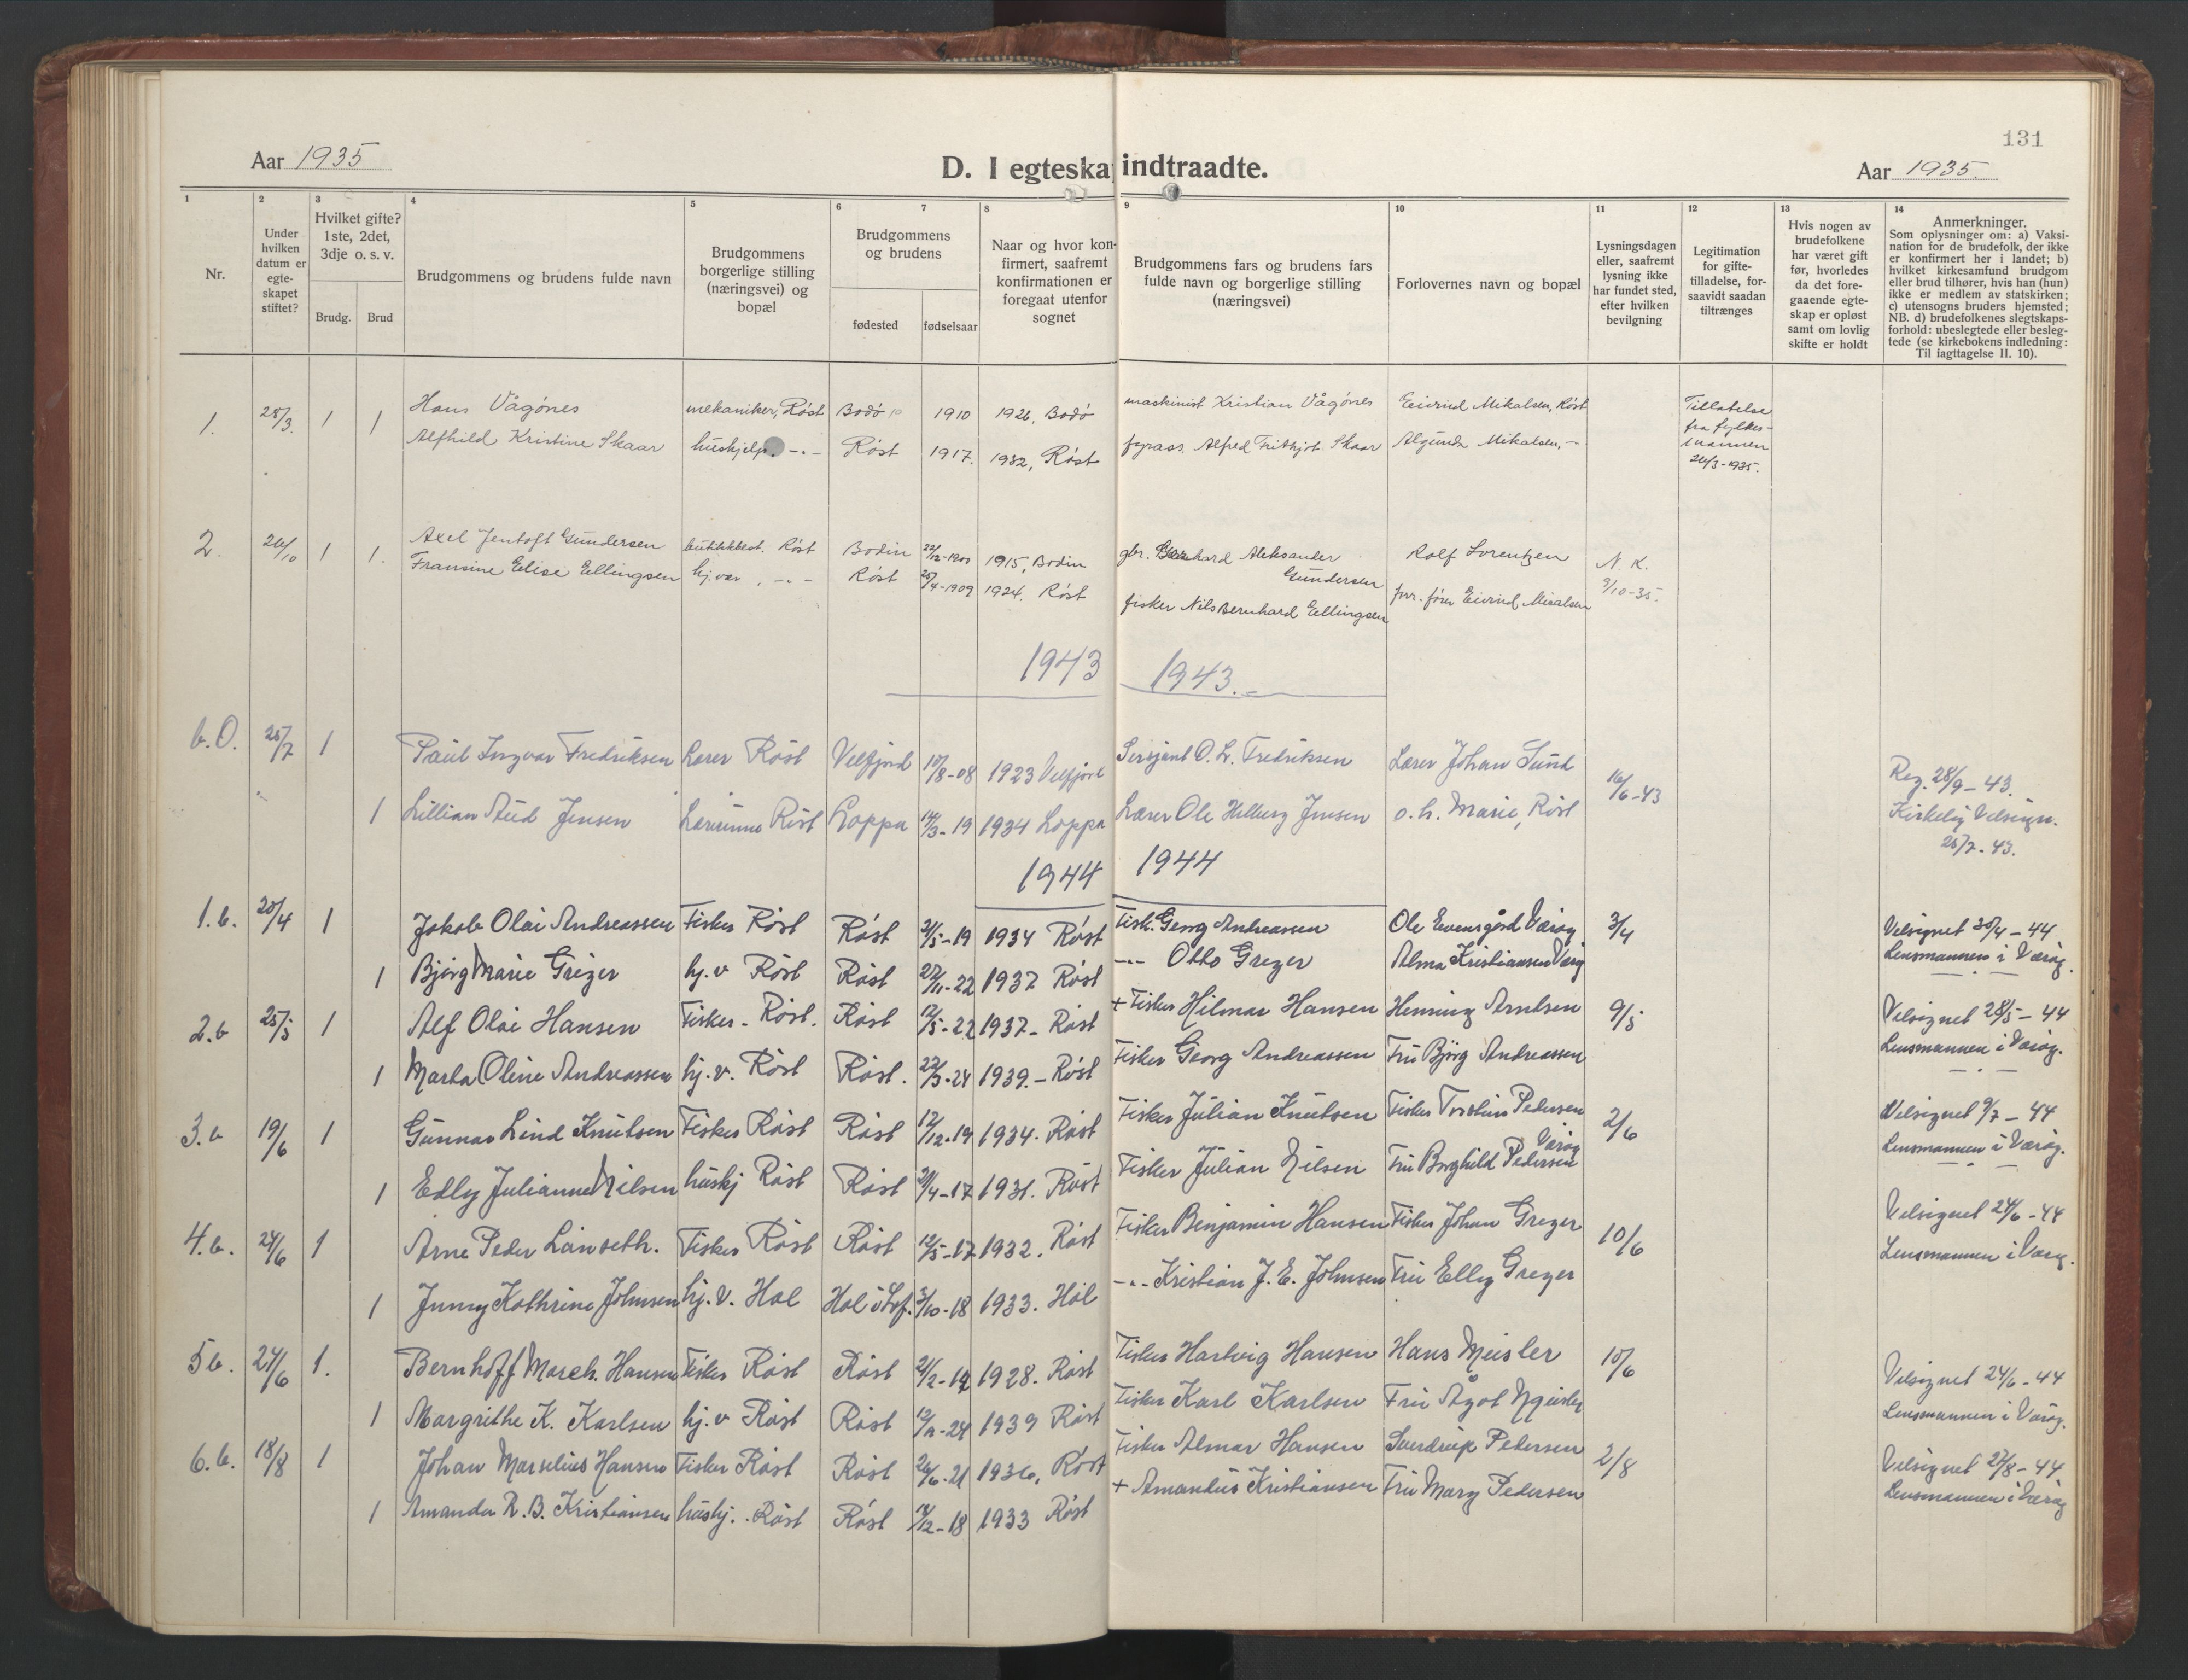 131
Aar 1935
D. I egteskap indtraadte.
Aar 1935.
1 2 3 4 5 6 7 8 9 10 11 12 13 14
Nr.
Under hvilken datum er egte-skapet stiftet?
Hvilket gifte? 1ste, 2det, 3dje o. s. v.
Brudg.
Brud
Brudgommens og brudens fulde navn
Brudgommens borgerlige stilling (næringsvei) og bopæl
Brudgommens og brudens
fødested
fødselsaar
Naar og hvor kon-firmert, saafremt konfirmationen er foregaat utenfor sognet
Brudgommens fars og brudens fars fulde navn og borgerlige stilling (næringsvei)
Forlovernes navn og bopæl
Lysningsdagen eller, saafremt lysning ikke har fundet sted, efter hvilken bevilgning
Legitimation for gifte-tilladelse, for-saavidt saadan tiltrænges
Hvis nogen av brudefolkene har været gift før, hvorledes da det fore-gaaende egte-skap er opløst samt om lovlig skifte er holdt
Anmerkninger.
Som oplysninger om: a) Vaksi-nation for de brudefolk, der ikke er konfirmert her i landet; b) hvilket kirkesamfund brudgom eller brud tilhører, hvis han (hun) ikke er medlem av statskirken; c) utensogns bruders hjemsted; NB. d) brudefolkenes slegtskaps-forhold: ubeslegtede eller besleg-tede (se kirkebokens indledning: Til iagttagelse II. 10).
1. 25/3 1 1 Hans Vågönes mekaniker, Röst Bodö 1910 1926, Bodö maskinist Kristian Vågönes Eivind Mikalsen, Röst
Alfhild Kristine Skaar hushjelp. -.- Röst 1917. 1932, Röst Alfred Fritjot Skaar Mikalsen, -"-
Tillatelse
fra fylkes-
mannen
26/3-1935.
2. 26/10 1 1. Axel Jentoft Gundersen Röst Bodin 22/12-1900 1915, Bodin gbr. Aleksander Gundersen Rolf Lorentzen N. K. 9/10-35.
Fransine Elise Ellingsen hj.vær. -.- Röst 20/4-1909 1924. Röst fisker Nils Bernhard Ellingsen Eivind Micalsen
1943 1943.
b.O. 25/7 1 Paul Ingvar Fredriksen Lærer Röst Velfjord 10/8-08 1923 Velfjord Sersjant O. L. Fredriksen Lærer Johan Sund 16/6-43 Reg. 28/9-43.
1 Lillian Aud Jensen Lærerinne Röst Loppa 14/3-19 1934 Loppa Lærer Ole Jensen o. h. Marie, Röst Kirkelig Velsign.
25/7-43.
1944 1944
1.b. 20/4 1 Jakob Olai Andreassen Fisker Röst Röst 21/5-19 1934 Röst Fisk. Georg Andreassen Ole Evensgård Værøy 3/4 Velsignet 30/4-44
1 Bjørg Marie Greger hj.v Röst Röst 27/11-22 1937 Röst -.- Otto Greger Alma Kristiansen Værøy Lensmannen i Værøy.
2.b 25/5 1 Alf Olai Hansen Fisker - Röst. Röst 12/5-22 1937- Röst + Fisker Hilmar Hansen Henning Arntsen 9/5 Velsignet 28/5-44
1 Marta Oline Andreassen hj.v. Röst Röst. 22/3-24 1939.- Röst Fisker Georg Andreassen Fru Bjørg Andreassen Lensmannen i Værøy.
3.b 19/6 1 Gunnar Lind Knutsen Fisker Röst Röst 12/12-19 1934. Röst Fisker Julian Knutsen Fisker Torstein Pedersen Værøy 2/6 Velsignet 9/7-44
1 Edly Julianne Nilsen hushj Röst Röst 21/4-17 1931. Röst Fisker Julian Nilsen Fru Borghild Pedersen Lensmannen i Værøy.
4.b. 24/6 1 Arne Peder Lanseth. Fisker Röst Röst 12/5-17 1932. Röst Fisker Benjamin Hansen Fisker Johan Greger 10/6 Velsignet 24/6-44
1 Jenny Kathrine Johnsen hj.v. Hol Hol i Lof. 3/10-18 1933. Hol -.- Kristian J. E. Johnsen Fru Elly Greger Lensmannen i Værøy.
5b. 24/6 1. Bernhoff March. Hansen Fisker Röst Röst 21/2-14 1928. Röst Fisker Hartvig Hansen Hans Meisler 10/6 Velsignet 24/6-44
1 Margrithe K. Karlsen hj.v Röst Röst 1939 Röst Fisker Karl Karlsen Fru Ågot Meisler Lensmannen i Værøy.
6.b. 18/8 1 Johan Marselius Hansen Fisker Röst Röst 26/6-21 1936, Röst Fisker Almar Hansen Sverdrup Pedersen 2/8 Velsignet 27/8-44
1 Amanda R. B. Kristiansen hushj. Röst Röst 18/12-18 1933 Röst + Amandus Kristiansen Fru Mary Pedersen Lensmannen i Værøy